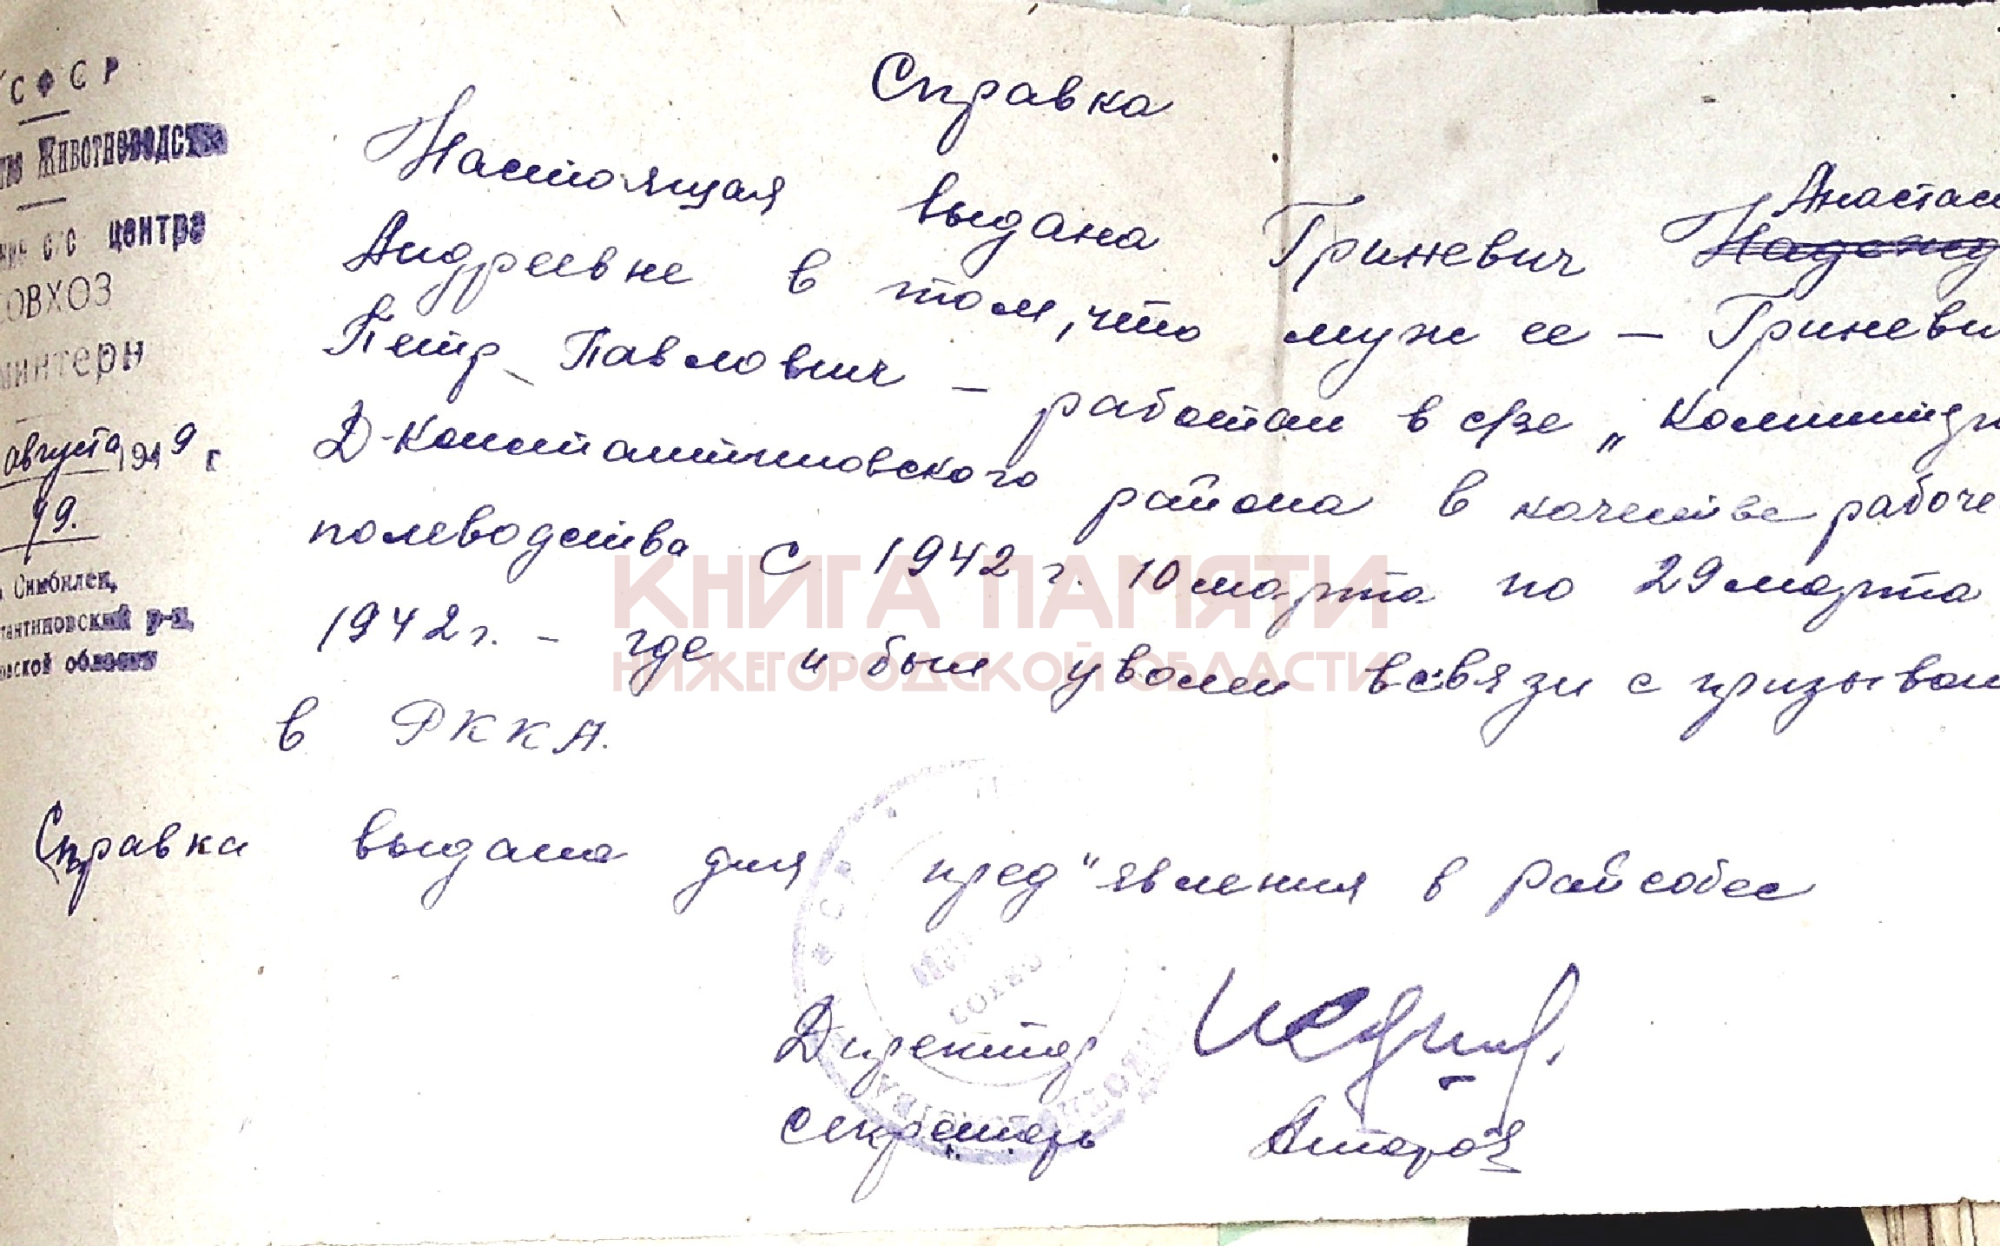 СФСР
Животноводства
с/с центра
СОВХОЗ
минтерн
августа 1949 г
99.
Симбилей,
тантиновский р-н,
вской области
Справка
Настоящая выдана Гриневич Анастас
Андреевне в том, что муж ее – Гриневи
Петр Павлович – работал в с/зе „Коминтерн
Д-Константиновского района в качестве рабоче
полеводства с 1942 г. 10 марта по 29 марта
1942 г. – где и был уволен в связи с призывом
в РККА.
Справка выдана для пред"явления в райсобес
Директор
Секретарь
КНИГА ПАМЯТИ
НИЖЕГОРОДСКОЙ ОБЛАСТИ